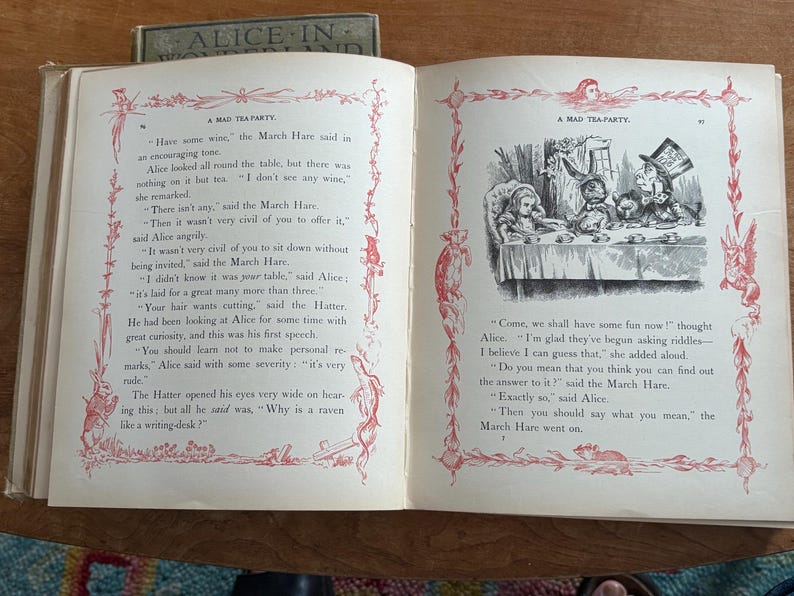 ALICE · IN
WONDERLAND
A MAD TEA-PARTY.
96
“ Have some wine,” the March Hare said in
an encouraging tone.
Alice looked all round the table, but there was
nothing on it but tea. “ I don't see any wine,”
she remarked.
“ There isn't any,” said the March Hare.
“ Then it wasn't very civil of you to offer it,”
said Alice angrily.
“ It wasn't very civil of you to sit down without
being invited,” said the March Hare.
“ I didn't know it was your table,” said Alice ;
“ it's laid for a great many more than three.”
“ Your hair wants cutting,” said the Hatter.
He had been looking at Alice for some time with
great curiosity, and this was his first speech.
“ You should learn not to make personal re-
marks,” Alice said with some severity : “ it's very
rude.”
The Hatter opened his eyes very wide on hear-
ing this ; but all he said was, “ Why is a raven
like a writing-desk ?”
A MAD TEA-PARTY.
97
“ Come, we shall have some fun now !” thought
Alice. “ I'm glad they've begun asking riddles—
I believe I can guess that,” she added aloud.
“ Do you mean that you think you can find out
the answer to it ?” said the March Hare.
“ Exactly so,” said Alice.
“ Then you should say what you mean,” the
March Hare went on.
7